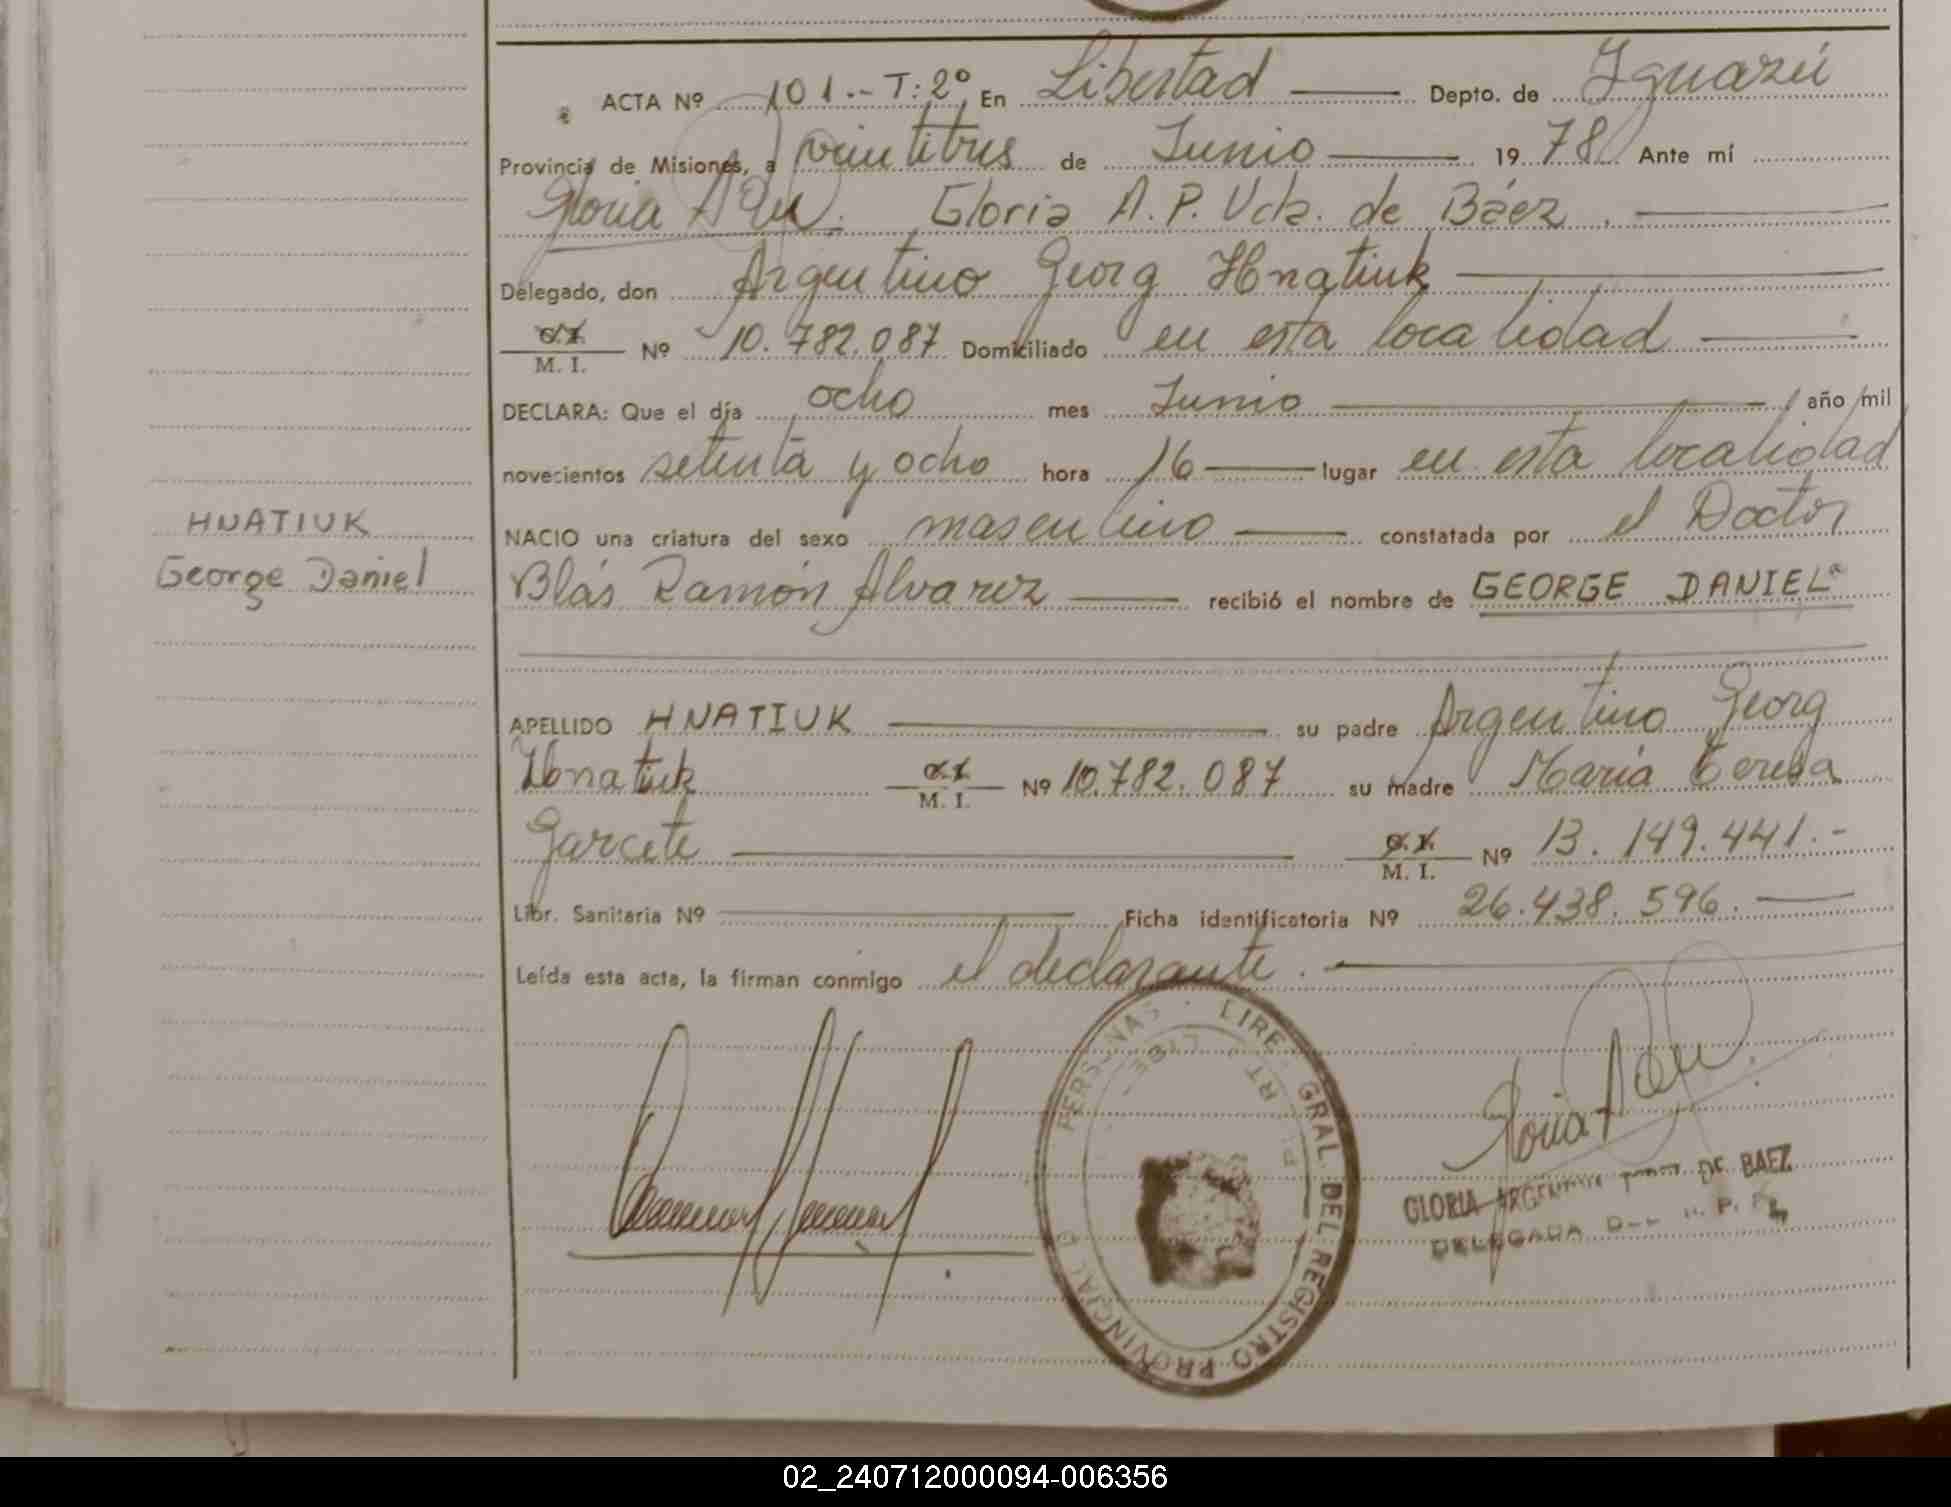 ACTA Nº 101.- T: 2º En Libertad Depto. de Iguazú
Provincia de Misiones, a veintitres de Junio 1978 Ante mí
Gloria A. P. Vda. de Báez.
Delegado, don Argentino Georg Hnatiuk
M. I. Nº 10.782.087 Domiciliado en esta localidad
DECLARA: Que el día ocho mes Junio año mil
novecientos setenta y ocho hora 16 lugar en esta localidad
NACIO una criatura del sexo masculino constatada por el Doctor
HNATIUK
George Daniel
Blás Ramón Alvarez recibió el nombre de GEORGE DANIEL
APELLIDO HNATIUK su padre Argentino Georg
Hnatiuk M. I. Nº 10.782.087 su madre María Teresa
Garcete M. I. Nº 13.149.441.-
Libr. Sanitaria Nº Ficha identificatoria Nº 26.438.596.
Leída esta acta, la firman conmigo el declarante.
GRAL. DEL REGISTRO PROVINCIAL
GLORIA DE BAEZ
DELEGADA
02_240712000094-006356